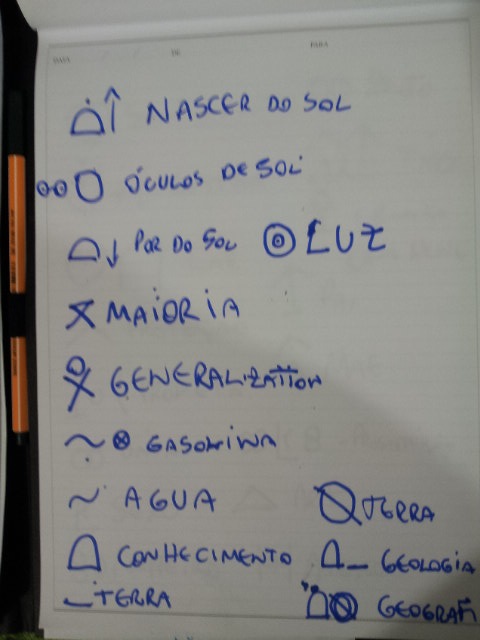 DE
PARA
NASCER DO SOL
ÓCULOS DE SOL
POR DO SOL LUZ
MAIORIA
GENERALIZATION
GASOLINA
AGUA
TERRA
CONHECIMENTO GEOLOGIA
TERRA GEOGRAFI